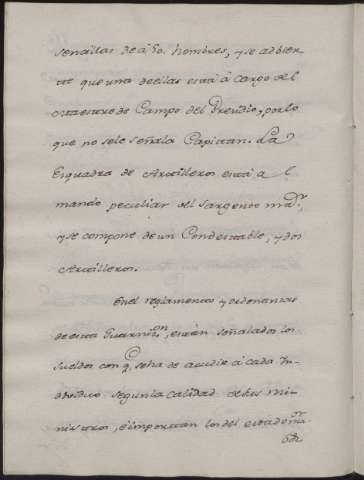 sencillas de á 50. hombres, y se advier
te que una de ellas está á cargo del
Maestre de Campo del Presidio, por lo
que no se le señala Capitan. La
Esquadra de Artilleros está a l
mando peculiar del Sargento mör,
y se compone de un Condestable, y dos
Artilleros.
En el reglamento, y ordenanzas
de esta Guarnion, están señalados los
sueldos con q se ha de acudir á cada In
dividuo segun la calidad de sus mi
nisterios, é importan los del estado mör